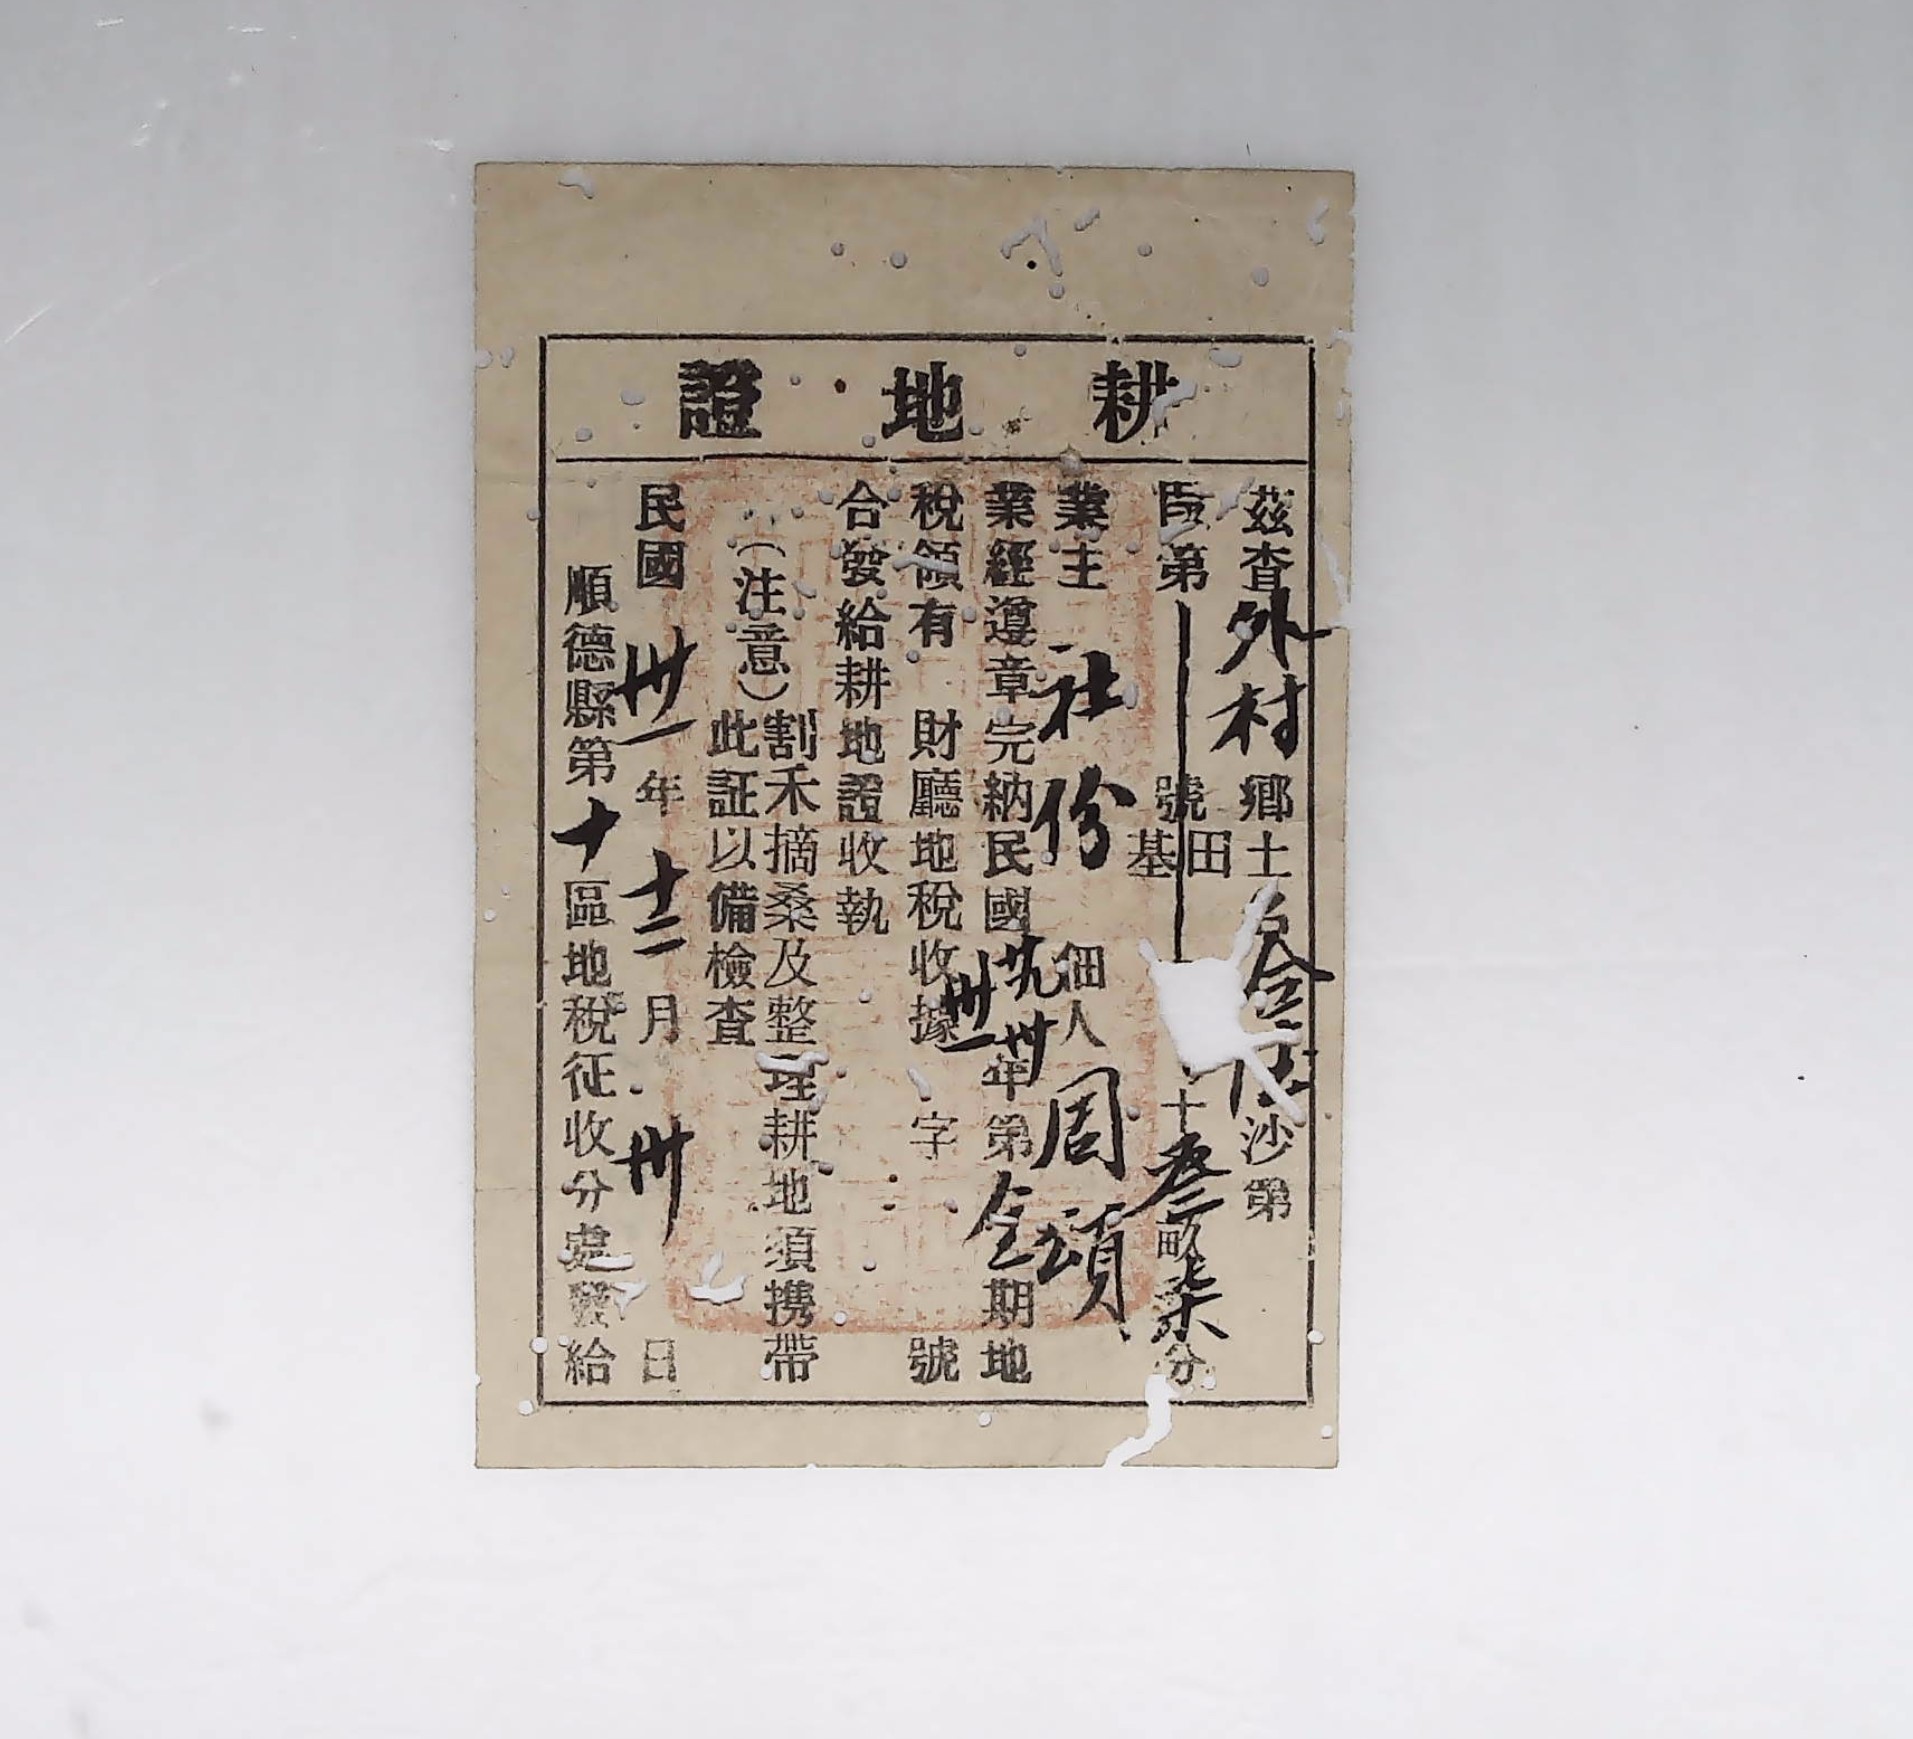 耕地證
茲查外村鄉土名 沙第
區第 號 田基 十叁畝柒分
業主 社份 佃人 周頌
業經遵章完納民國 廿九 卅 卅一 年第全期地
稅領有 財廳地稅收據 字 號
合發給耕地證收執
(注意)割禾摘桑及整理耕地須携帶
此証以備檢查
民國卅一年十二月卅日
順德縣第十區地稅征收分處發給